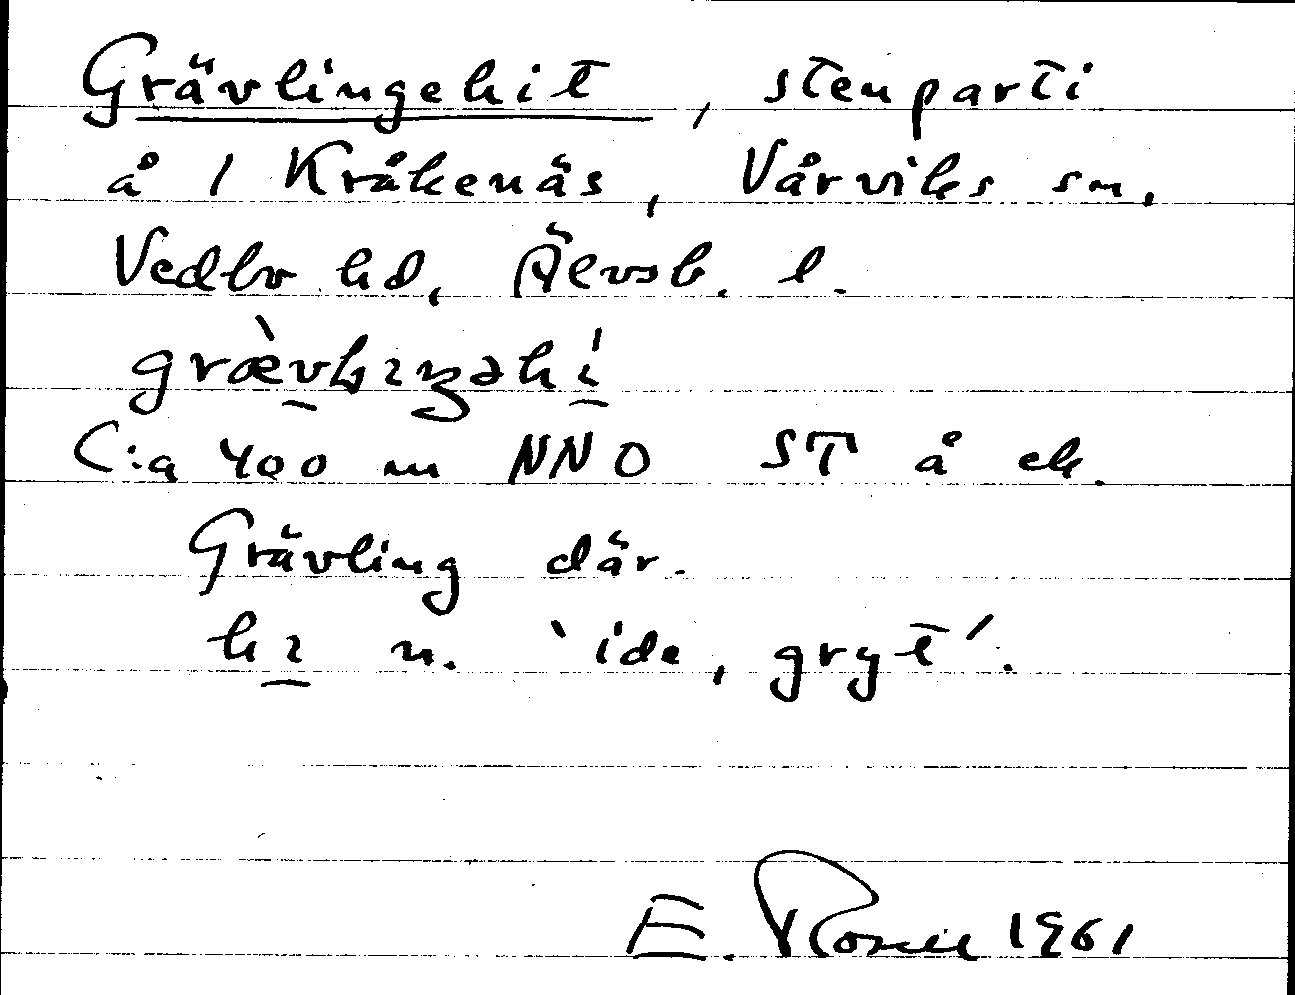 Grävlingehit, stenparti
å 1 Kråkenäs, Vårviks sn,
Vedbo hd, Älvsb. l.
C:a 400 m NNO ST å ek.
Grävling där.
hı n. 'ide, gryt'.
E. Rosell 1961